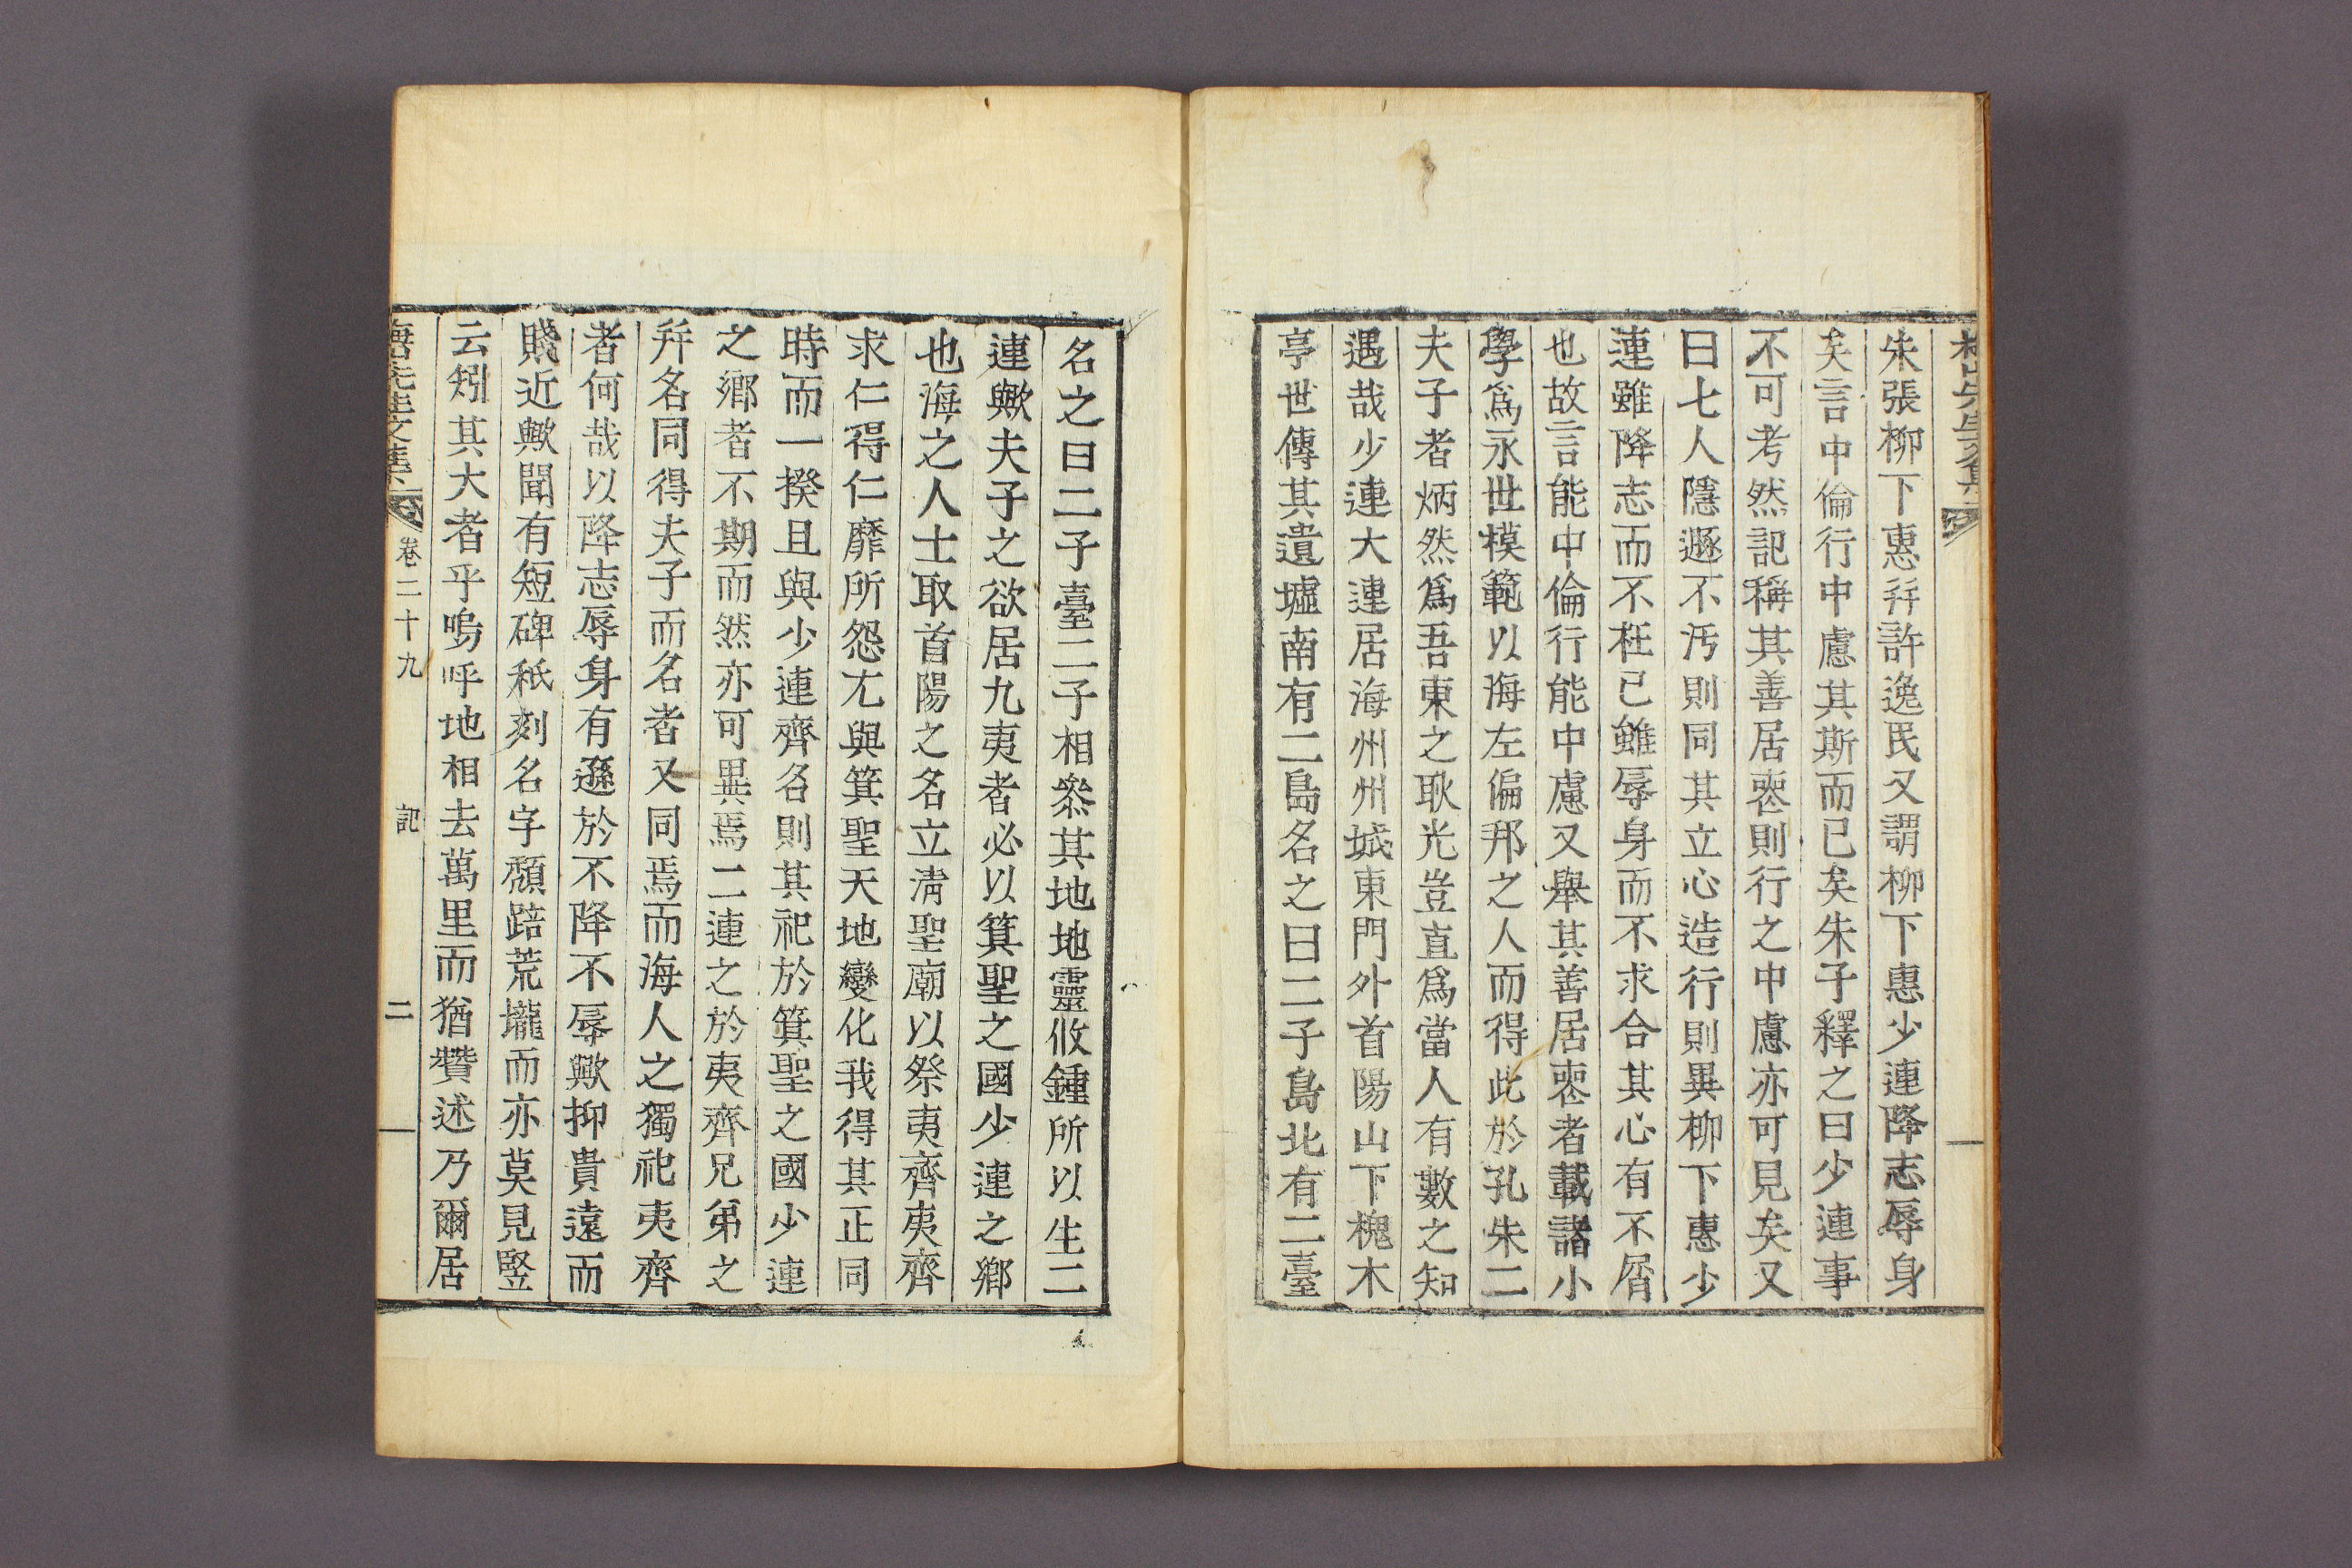 朱張柳下惠幷許逸民又謂柳下惠少連降志辱身
矣言中倫行中慮其斯而已矣朱子釋之曰少連事
不可考然記稱其善居喪則行之中慮亦可見矣又
曰七人隱遯不汚則同其立心造行則異柳下惠少
連雖降志而不枉已雖辱身而不求合其心有不屑
也故言能中倫行能中慮又擧其善居喪者載諸小
學爲永世模範以海左偏邦之人而得此於孔朱二
夫子者炳然爲吾東之耿光豈直爲當人有數之知
遇哉少連大連居海州州城東門外首陽山下槐木
亭世傳其遺墟南有二島名之曰二子島北有二臺
名之曰二子臺二子相叅其地地靈攸鍾所以生二
連歟夫子之欲居九夷者必以箕聖之國少連之鄕
也海之人士取首陽之名立淸聖廟以祭夷齊夷齊
求仁得仁靡所怨尤與箕聖天地變化我得其正同
時而一揆且與少連齊名則其祀於箕聖之國少連
之鄕者不期而然亦可異焉二連之於夷齊兄弟之
幷名同得夫子而名者又同焉而海人之獨祀夷齊
者何哉以降志辱身有遜於不降不辱歟抑貴遠而
賤近歟聞有短碑秖刻名字頹踣荒壠而亦莫見竪
云矧其大者乎嗚呼地相去萬里而猶贊述乃爾居
先生文集 卷二十九 記 二